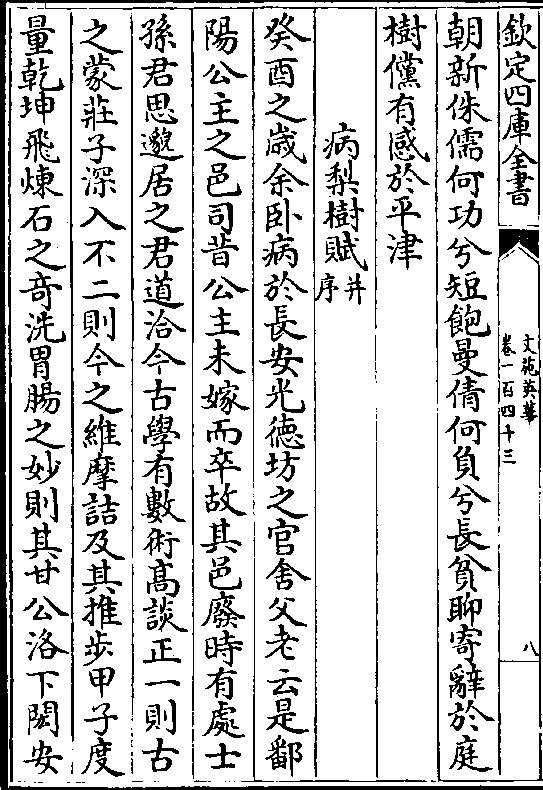 欽定四庫全書
文苑英華
卷一百四十三
八
朝新侏儒何功兮短飽曼倩何負兮長貧聊寄辭於庭
樹儻有感於平津
病梨樹賦并序
癸酉之歲余卧病於長安光德坊之官舍父老云是鄱
陽公主之邑司昔公主未嫁而卒故其邑廢時有處士
孫君思邈居之君道洽今古學有數術高談正一則古
之蒙莊子深入不二則今之維摩詰及其推步甲子度
量乾坤飛煉石之奇洗胃腸之妙則其甘公洛下閎安